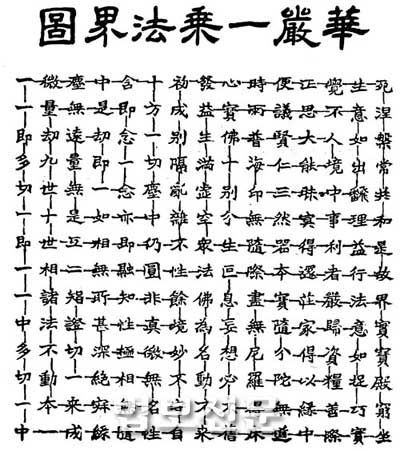 華嚴一乘法界圖
死涅槃常共和是故界實寶殿窮坐
生意如出繁理益行法意如捉巧實
覺不人境中事利者嚴歸資糧善際
正思大能昧冥得還莊家得以緣中
便議賢仁三然器本寶隨分陀無道
時雨普海印無隨際盡無尼羅得床
心寶佛十別分生叵息妄想必不舊
發益生滿虛空衆法佛為名動不來
初成別隔亂雜不性餘境妙不守自
十方一切塵中仍圓非真微無名性
含即念一念亦即融知性極相無隨
中是劫即一如相無所甚深絕寂緣
塵無遠量無是互二智證切一來成
微量劫九世十世相諸法不動本一
一一即多切一即一一中多切一中
법보신문